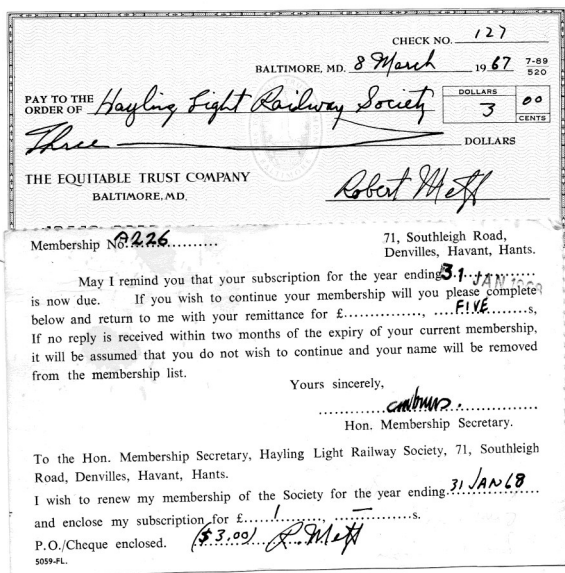 CHECK NO. 127
BALTIMORE, MD. 8 March 1967 7-89
520
PAY TO THE
ORDER OF Hayling Light Railway Society
DOLLARS
3 00
CENTS
Three DOLLARS
THE EQUITABLE TRUST COMPANY
BALTIMORE, MD.
Robert Meff
Membership No. A226
71, Southleigh Road,
Denvilles, Havant, Hants.
May I remind you that your subscription for the year ending 31 JAN
is now due. If you wish to continue your membership will you please complete
below and return to me with your remittance for £..............., FIVE s,
If no reply is received within two months of the expiry of your current membership,
it will be assumed that you do not wish to continue and your name will be removed
from the membership list.
Yours sincerely,
Hon. Membership Secretary.
To the Hon. Membership Secretary, Hayling Light Railway Society, 71, Southleigh
Road, Denvilles, Havant, Hants.
I wish to renew my membership of the Society for the year ending 31 JAN 68
and enclose my subscription for £ 1 — s.
P.O./Cheque enclosed. ($3.00) R. Meff
5059-FL.